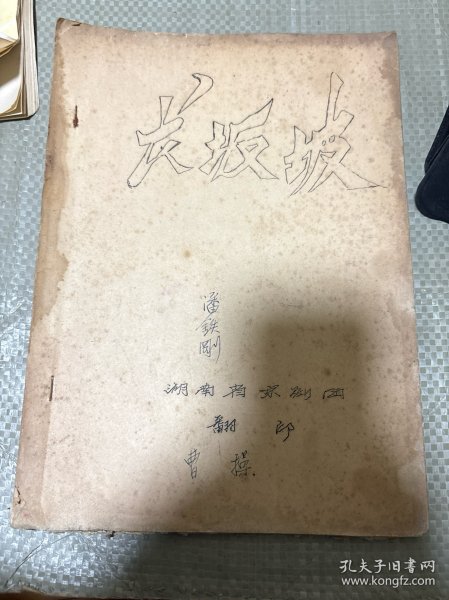 长坂坡
潘铁刚
湖南省京剧团
翻印
曹操
孔夫子旧书网
www.kongfz.com